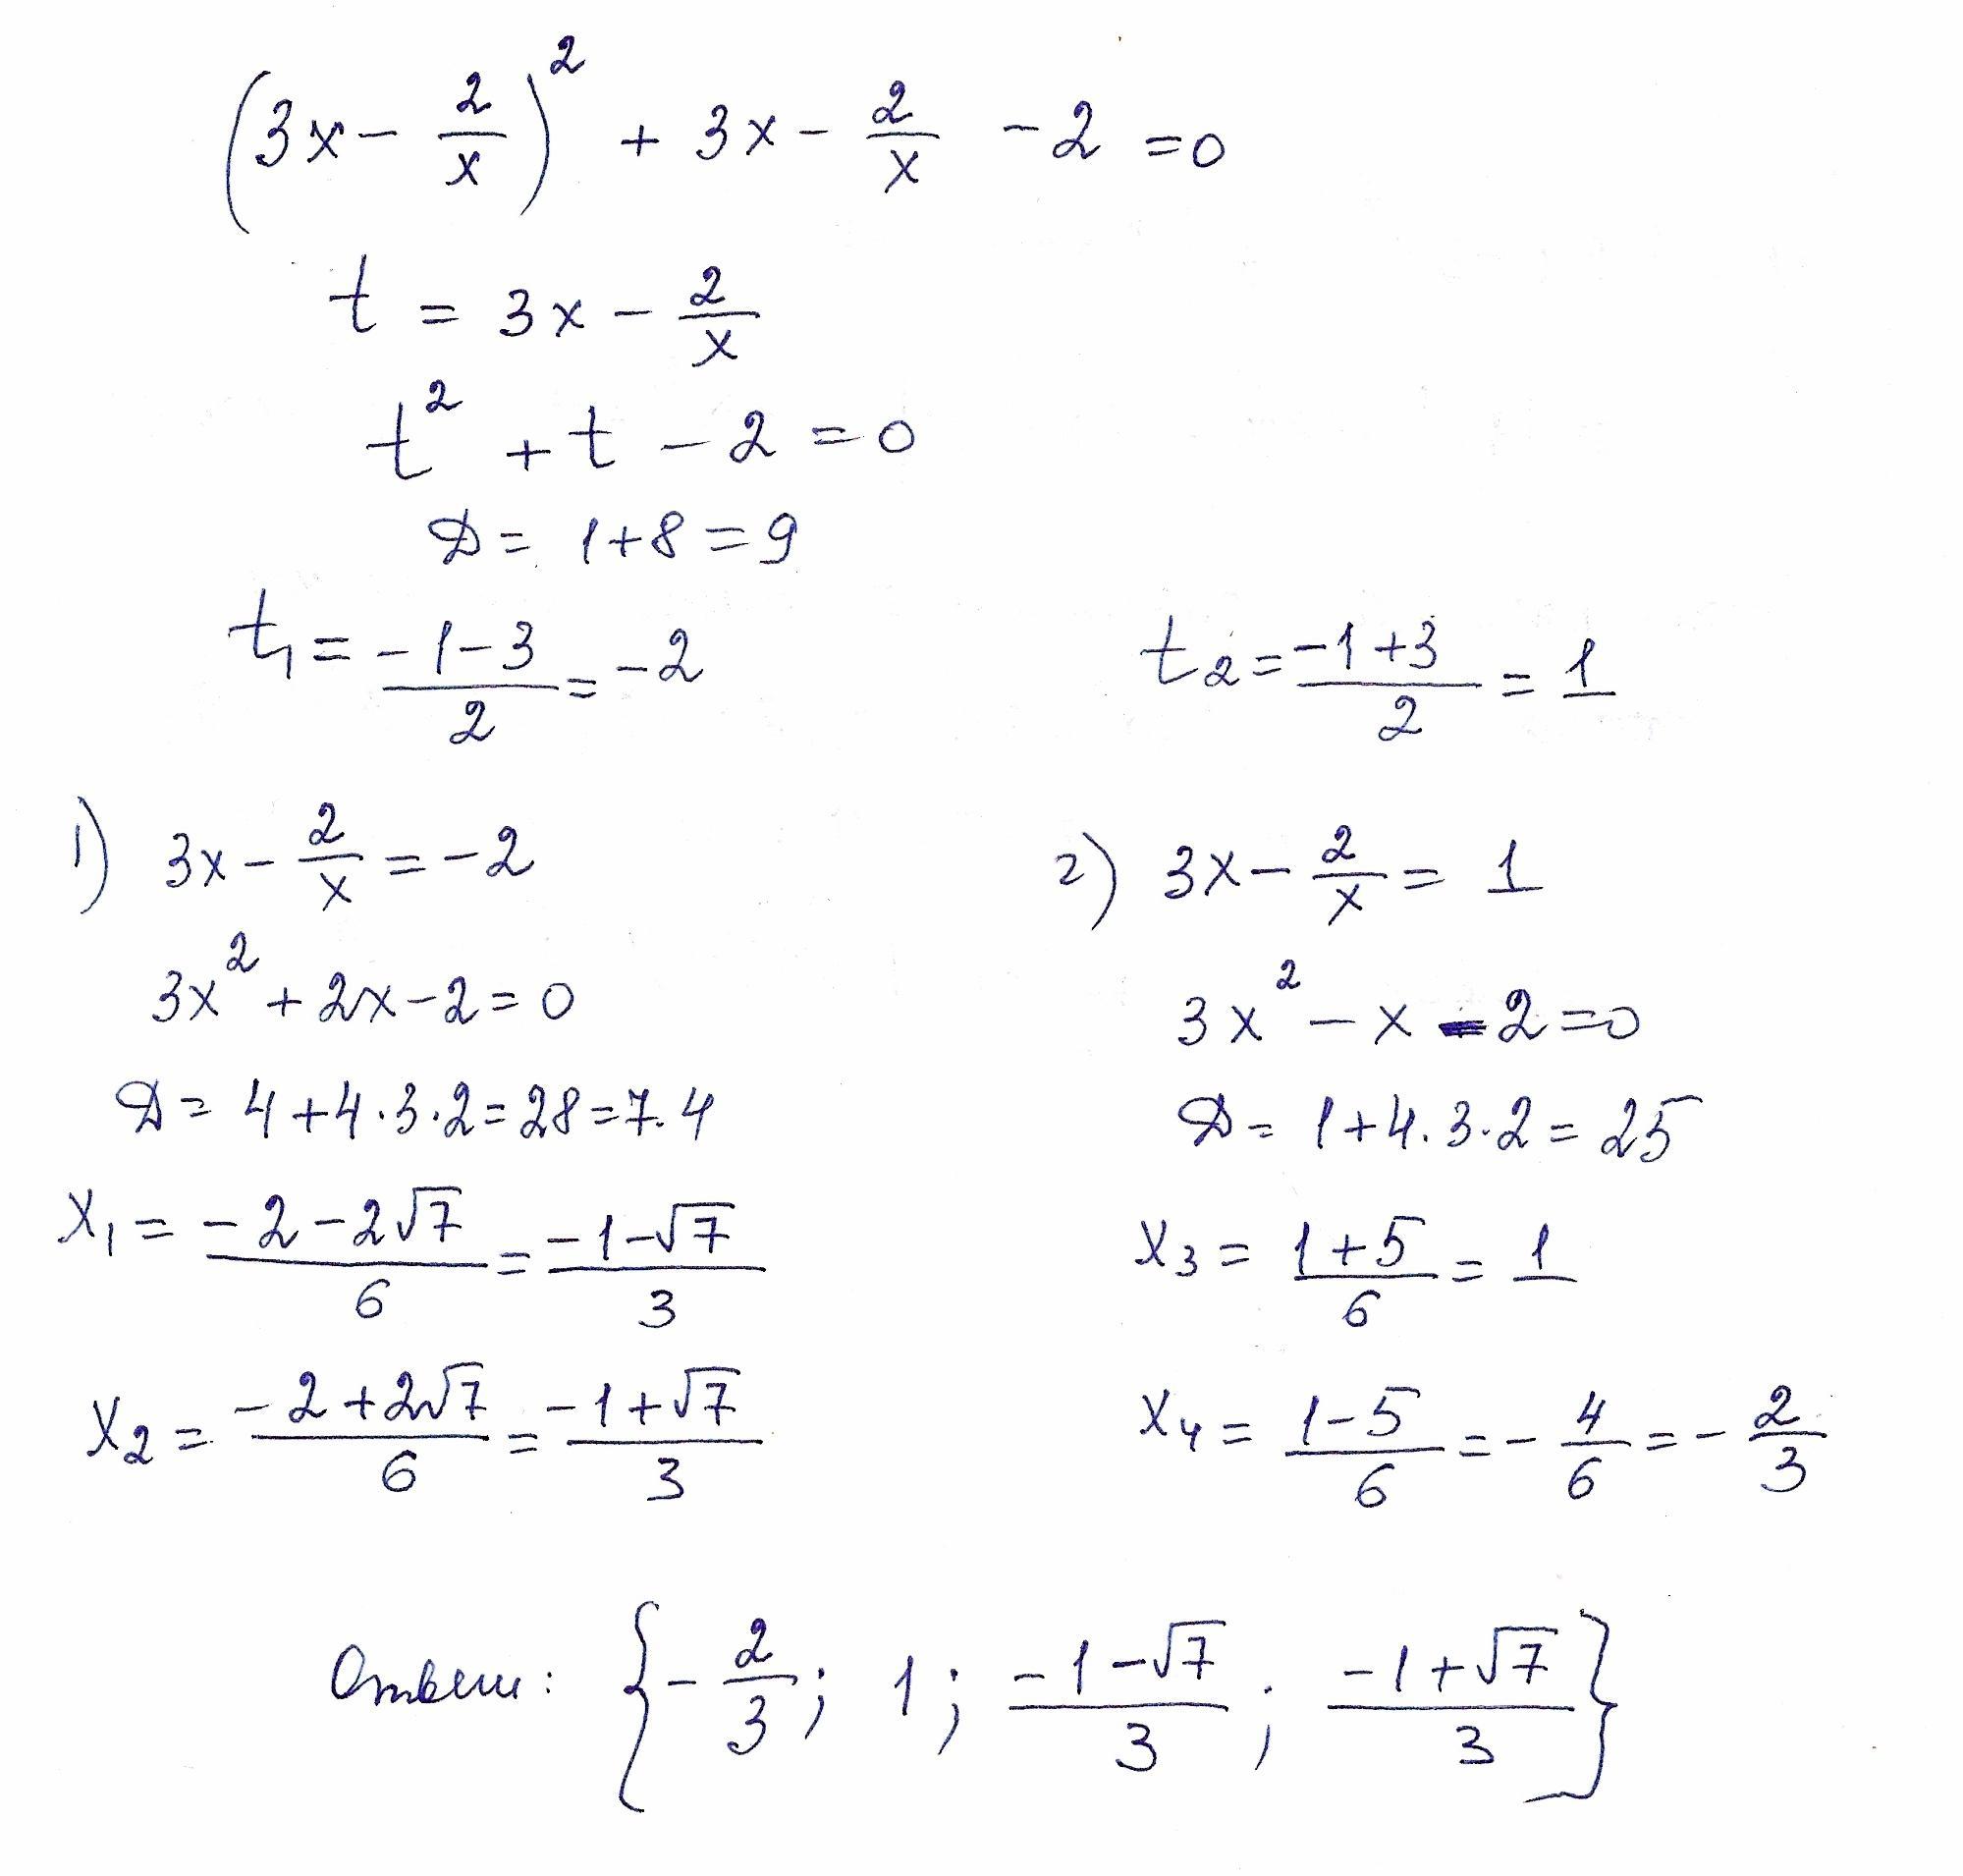 (3x - 2/x)² + 3x - 2/x - 2 = 0
t = 3x - 2/x
t² + t - 2 = 0
D = 1+8 = 9
t₁ = (-1-3)/2 = -2
t₂ = (-1+3)/2 = 1
1) 3x - 2/x = -2
3x² + 2x - 2 = 0
D = 4+4·3·2 = 28 = 7·4
x₁ = (-2-2√7)/6 = (-1-√7)/3
x₂ = (-2+2√7)/6 = (-1+√7)/3
2) 3x - 2/x = 1
3x² - x - 2 = 0
D = 1+4·3·2 = 25
x₃ = (1+5)/6 = 1
x₄ = (1-5)/6 = -4/6 = -2/3
Ответ: {-2/3; 1; (-1-√7)/3; (-1+√7)/3}